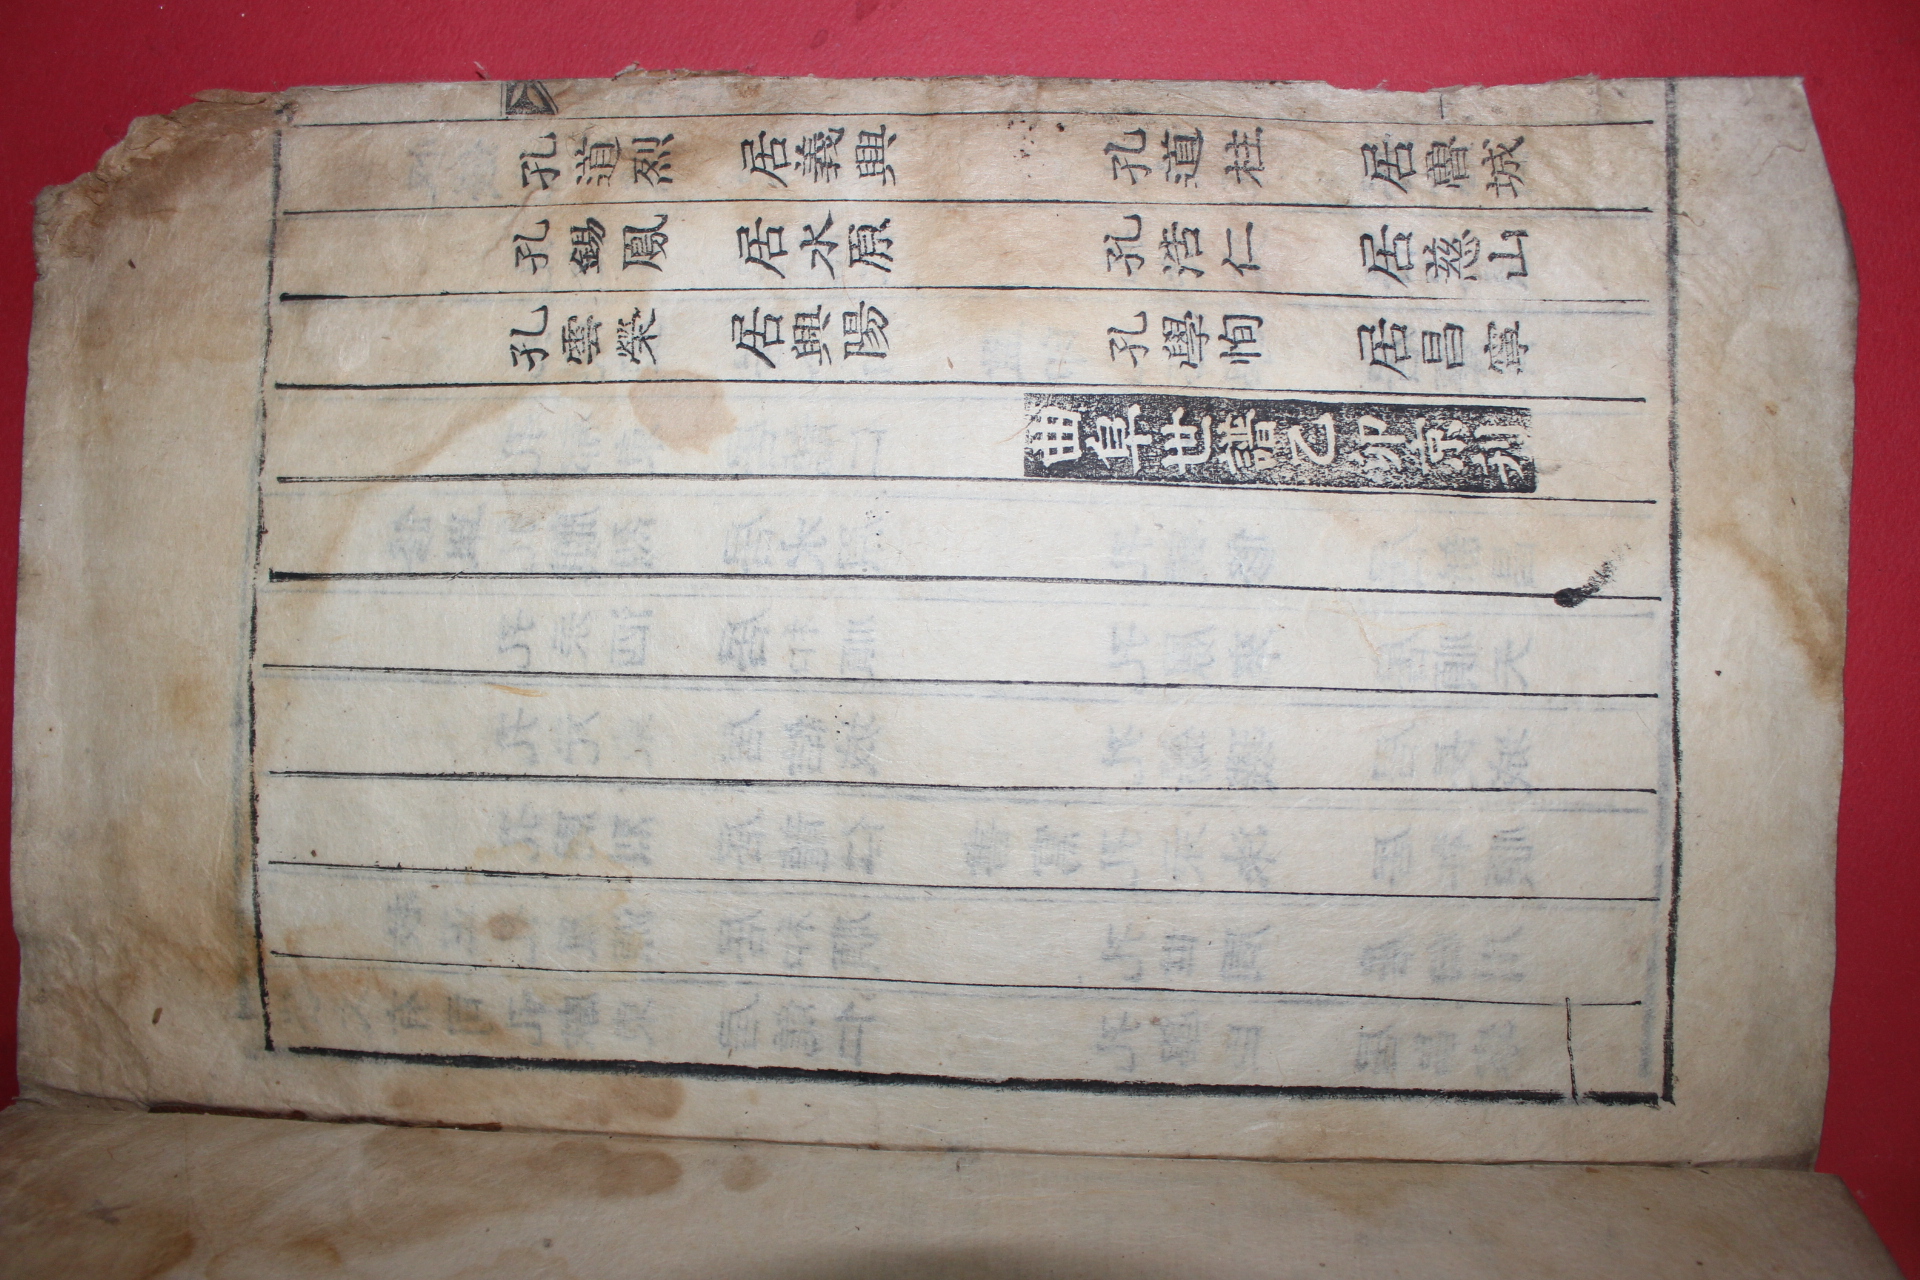 孔道烈 居義興 孔道柱 居魯城
孔錫鳳 居水原 孔浩仁 居慈山
孔雲榮 居興陽 孔學恂 居昌寧
曲阜世譜乙卯京刋